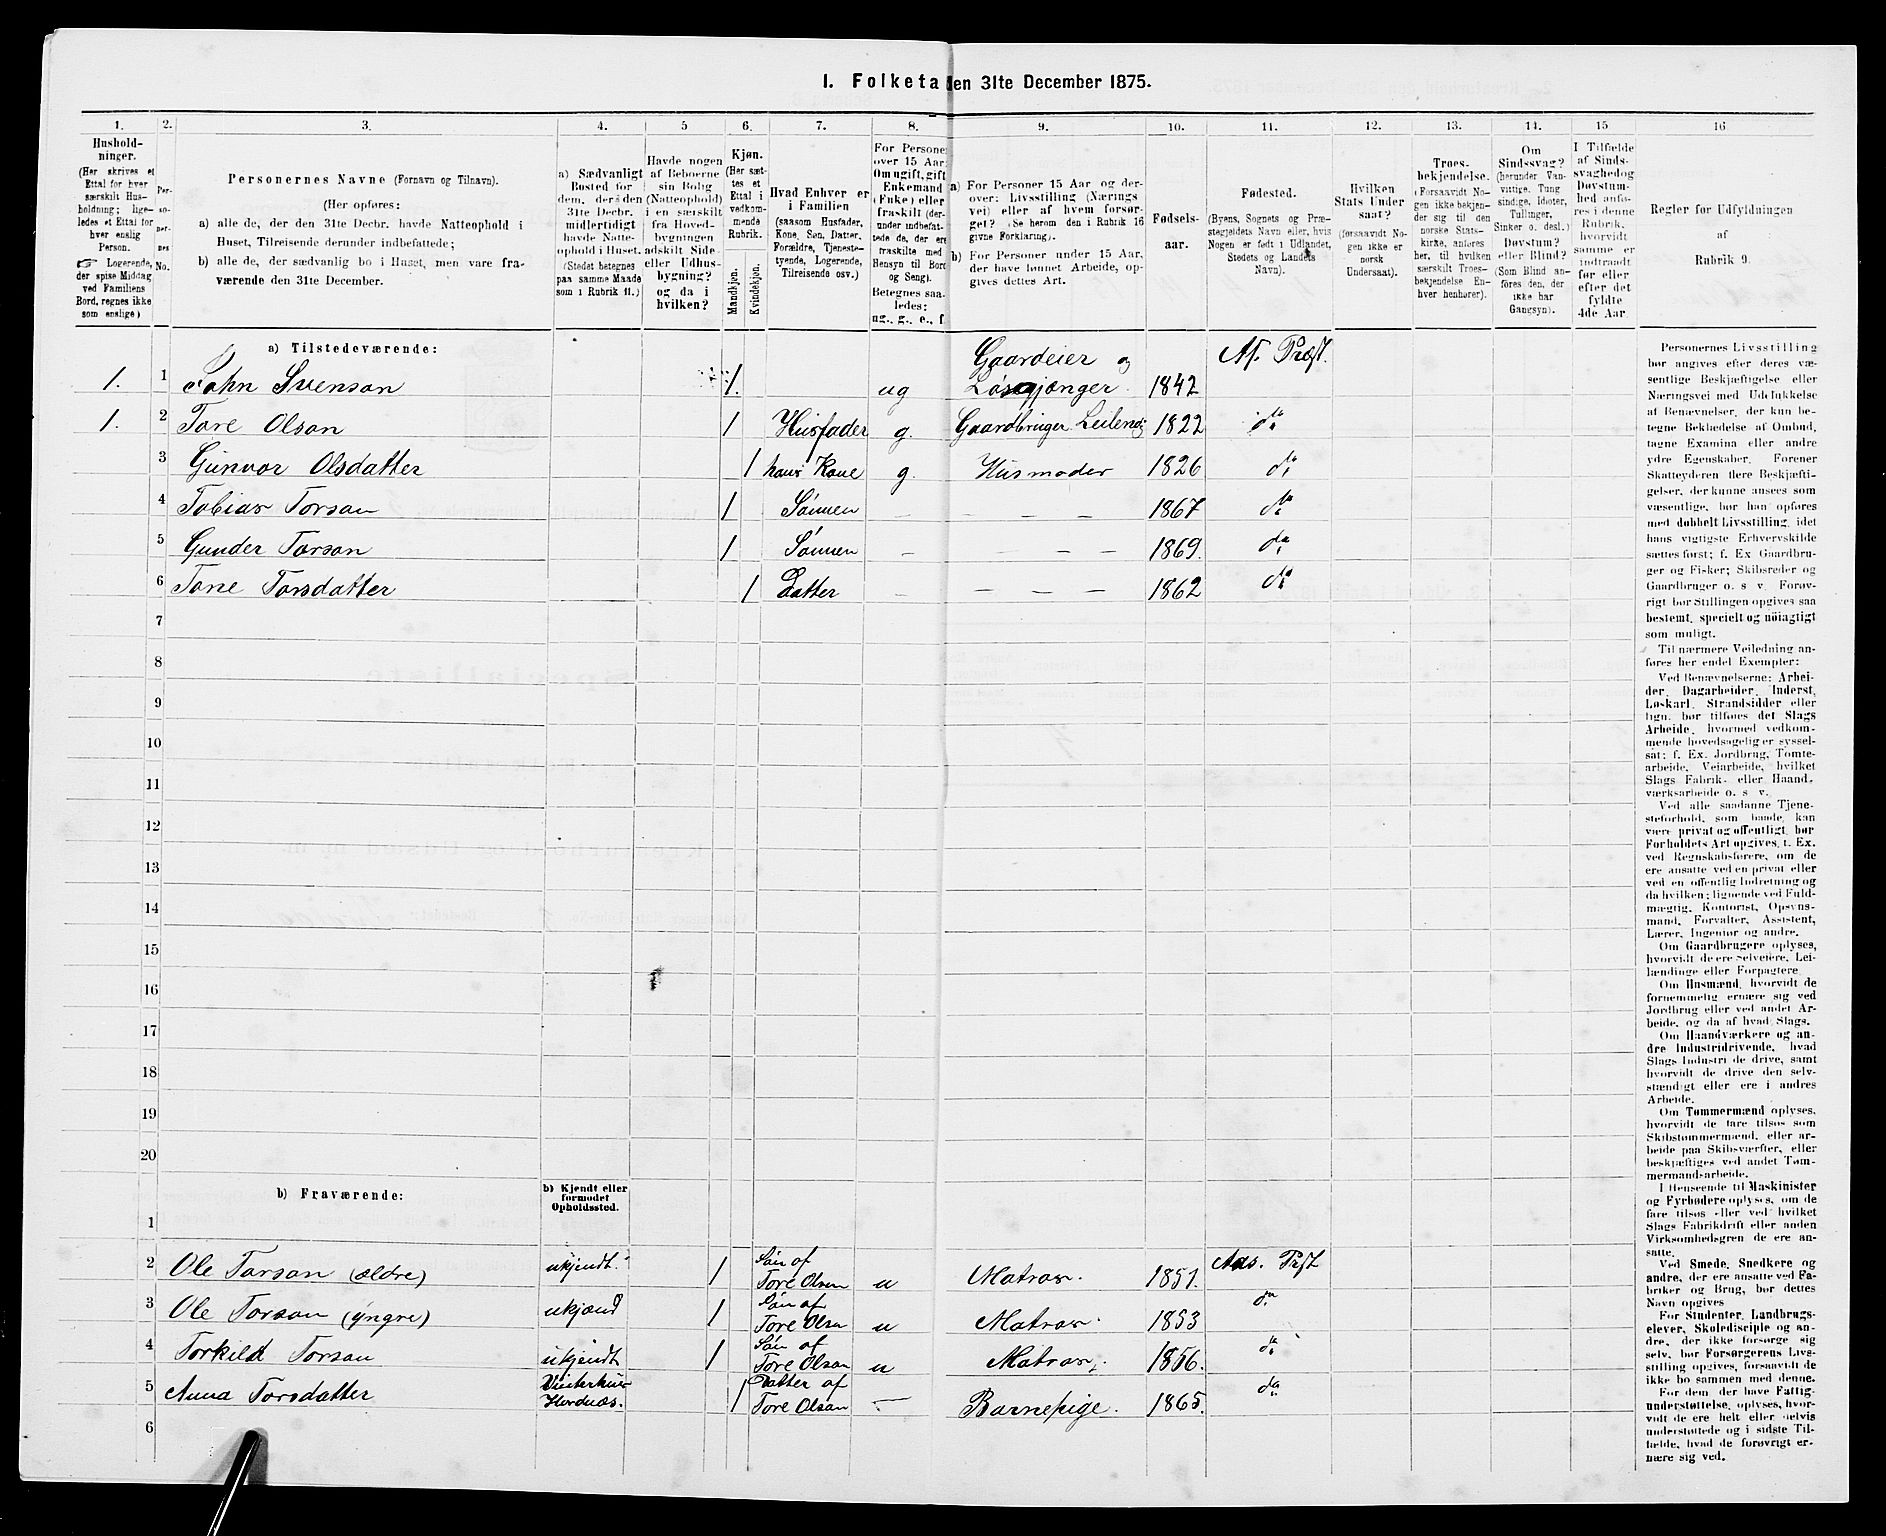 1. Folketa den 31te December 1875.
1. 2. 3. 4. 5 6. 7. 8. 9. 10. 11. 12. 13. 14. 15 16
Hushold-
ninger.
(Her skrives et
Ettal for hver
særskilt Hus-
holdning; lige-
ledes et Ettal for
hver enslig
Person.
☞ Logerende,
der spise Middag
ved Familiens
Bord, regnes ikke
som enslige)
Per-
so-
ner-
nes
No.
Personernes Navne (Fornavn og Tilnavn).
(Her opføres:
a) alle de, der den 31te Decbr. havde Natteophold i
Huset, Tilreisende derunder indbefattede;
b) alle de, der sædvanlig bo i Huset, men vare fra-
værende den 31te December.
a) Sædvanligt
Bosted for
dem, der den
31te Decbr.
midlertidigt
havde Natte-
ophold i Huset.
(Stedet betegnes
paa samme Maade
som i Rubrik 11.)
Havde nogen
af Beboerne
sin Bolig
(Natteophold)
i en særskilt
fra Hoved-
bygningen
adskilt Side-
eller Udhus-
bygning?
og da i
hvilken?
Kjøn.
(Her sæt-
tes et
Ettal i
vedkom-
mende
Rubrik.
Mandkjøn.
Kvindekjøn.
Hvad Enhver er
i Familien
(saasom Husfader,
Kone, Søn, Datter,
Forældre, Tjeneste-
tyende, Logerende,
Tilreisende osv.)
For Personer
over 15 Aar:
Om ugift, gift,
Enkemand
(Enke) eller
fraskilt (der-
under indbefat-
tede de, der ere
fraskilte med
Hensyn til Bord
og Seng).
Betegnes saa-
ledes:
ug., g., e., f.
a) For Personer 15 Aar og der-
over: Livsstilling (Nærings
vei) eller af hvem forsør-
get? (Se herom den i Rubrik 16
givne Forklaring).
b) For Personer under 15 Aar,
der have lønnet Arbeide, op-
gives dettes Art.
Fødsels-
aar.
Fødested.
(Byens, Sognets og Præ-
stegjeldets Navn eller, hvis
Nogen er født i Udlandet,
Stedets og Landets
Navn).
Hvilken
Stats Under
saat?
(forsaavidt No-
gen ikke er
norsk
Undersaat).
Troes-
bekjendelse.
(Forsaavidt No-
gen ikke bekjen-
der sig til den
norske Stats-
kirke, anføres
her, til hvilken
særskilt Troes-
bekjendelse En-
hver henhører).
Om
Sindssvag?
(herunder Van-
vittige, Tung
sindige, Idioter,
Tullinger,
Sinker o. desl.)
Døvstum?
eller Blind?
(Som Blind an-
føres den, der
ikke har
Gangsyn).
I Tilfælde
af Sinds-
svaghed og
Døvstum-
hed anfø-
res i denne
Rubrik,
hvorvidt
samme er
indtraadt
før eller
efter det
fyldte
4de Aar.
Regler for Udfyldningen
af
Rubrik 9.
a) Tilstedeværende:
1. 1 John Svenson 1. ug Gaardeier og Løsgjænger. 1842 Af. Præst.
1. 2 Tore Olson 1 Husfader g. Gaardbruger Leilend: 1822 do
3 Gunvor Olsdatter 1 hans Kone g. Husmoder 1826 do
4 Tobias Torson 1 Sønnen – – – – 1867 do
5 Gunder Torson 1 Sønnen – – – – 1869. do
6 Tone Torsdatter 1 Datter – – – – 1862 do
7
8
9
10
11
12
13
14
15
16
17
18
19
20
b) Fraværende:
b) Kjendt eller
formodet
Opholdssted.
1
2 Ole Torson (ældre) ukjendt. 1 Søn af Tore Olsen u Matros. 1851. Aas. Præst
3 Ole Torson (yngre) ukjend 1 Søn af Tore Olsn u Matros. 1853 do
4 Torkild Torson ukjendt 1 Søn af Tore Olson u Matros. 1856. do
5 Anna Torsdatter 1 Datter af Tore Olson – Barnepige. 1865. do
6
Personernes Livsstilling
bør angives efter deres væ-
sentlige Beskjæftigelse eller
Næringsvei med Udelukkelse
af Benævnelser, der kun be-
tegne Beklædelse af Ombud,
tagne Examina eller andre
ydre Egenskaber. Forener
Skatteyderen flere Beskjæfti-
gelser, der kunne ansees som
væsentlige, bør han opføres
med dobbelt Livsstilling, idet
hans vigtigste Erhvervskilde
sættes først; f. Ex Gaardbru-
ger og Fisker; Skibsreder og
Gaardbruger o. s v. Forøv-
rigt bør Stillingen opgives saa
bestemt, specielt og nøiagtigt
som muligt.
Til nærmere Veiledning an-
føres her endel Exempler:
Ved Benævnelserne: Arbei-
der, Dagarbeider, Inderst,
Løskarl, Strandsidder eller
lign. bør tilføies det Slags
Arbeide, hvormed vedkom-
mende hovedsagelig er syssel-
sat; f. Ex. Jordbrug, Tomte-
arbeide, Veiarbeide, hvilket
Slags Fabrik- eller Haand-
værksarbeide o. s v.
Ved alle saadanne Tjene-
steforhold, som baade kan
være privat og offentligt, bør
Forholdets Art opgives, f. Ex.
ved Regnskabsførere, om de
ere ansatte ved en privat eller
ved en offentlig Indretning og
da hvilken; lignende ved Fuld-
mægtig, Kontorist, Opsyns-
mand, Forvalter, Assistent,
Lærer, Ingeniør og andre.
Om Gaardbrugere oplyses,
hvorvidt de ere Selveiere, Lei-
lændinge eller Forpagtere.
Om Husmænd, hvorvidt de
fornemmelig ernære sig ved
Jordbrug eller ved andet Ar-
beide, og da af hvad Slags.
Om Haandværkere og an-
dre Industridrivende, hvad
Slags Industri de drive, samt
hvorvidt de drive den selv-
stændigt eller ere i andres
Arbeide.
Om Tømmermænd oplyses,
hvorvidt de fare tilsøs som
Skibstømmermænd, eller ar-
beide paa Skibsværfter, eller
beskjæftiges ved andet Tøm-
mermandsarbeide.
I Henseende til Maskinister
og Fyrbødere oplyses, om de
fare tilsøs eller ved hvilket
Slags Fabrikdrift eller anden
Virksomhedsgren de ere an-
satte.
Ved Smede, Snedkere og
andre, der ere ansatte ved Fa-
briker og Brug, bør dettes
Navn opgives
For Studenter, Landbrugs-
elever, Skoledisciple og an-
dre, der ikke forsørge sig
selv, bør Forsørgerens Livs-
stilling opgives, forsaavidt de
ikke bo sammen med denne.
For dem, der have Fattig-
understøttelse, oplyses, hvor-
vidt de ere helt eller delvis
understøttede og i sidste Til-
fælde, hvad de forøvrigt er-
nære sig ved.